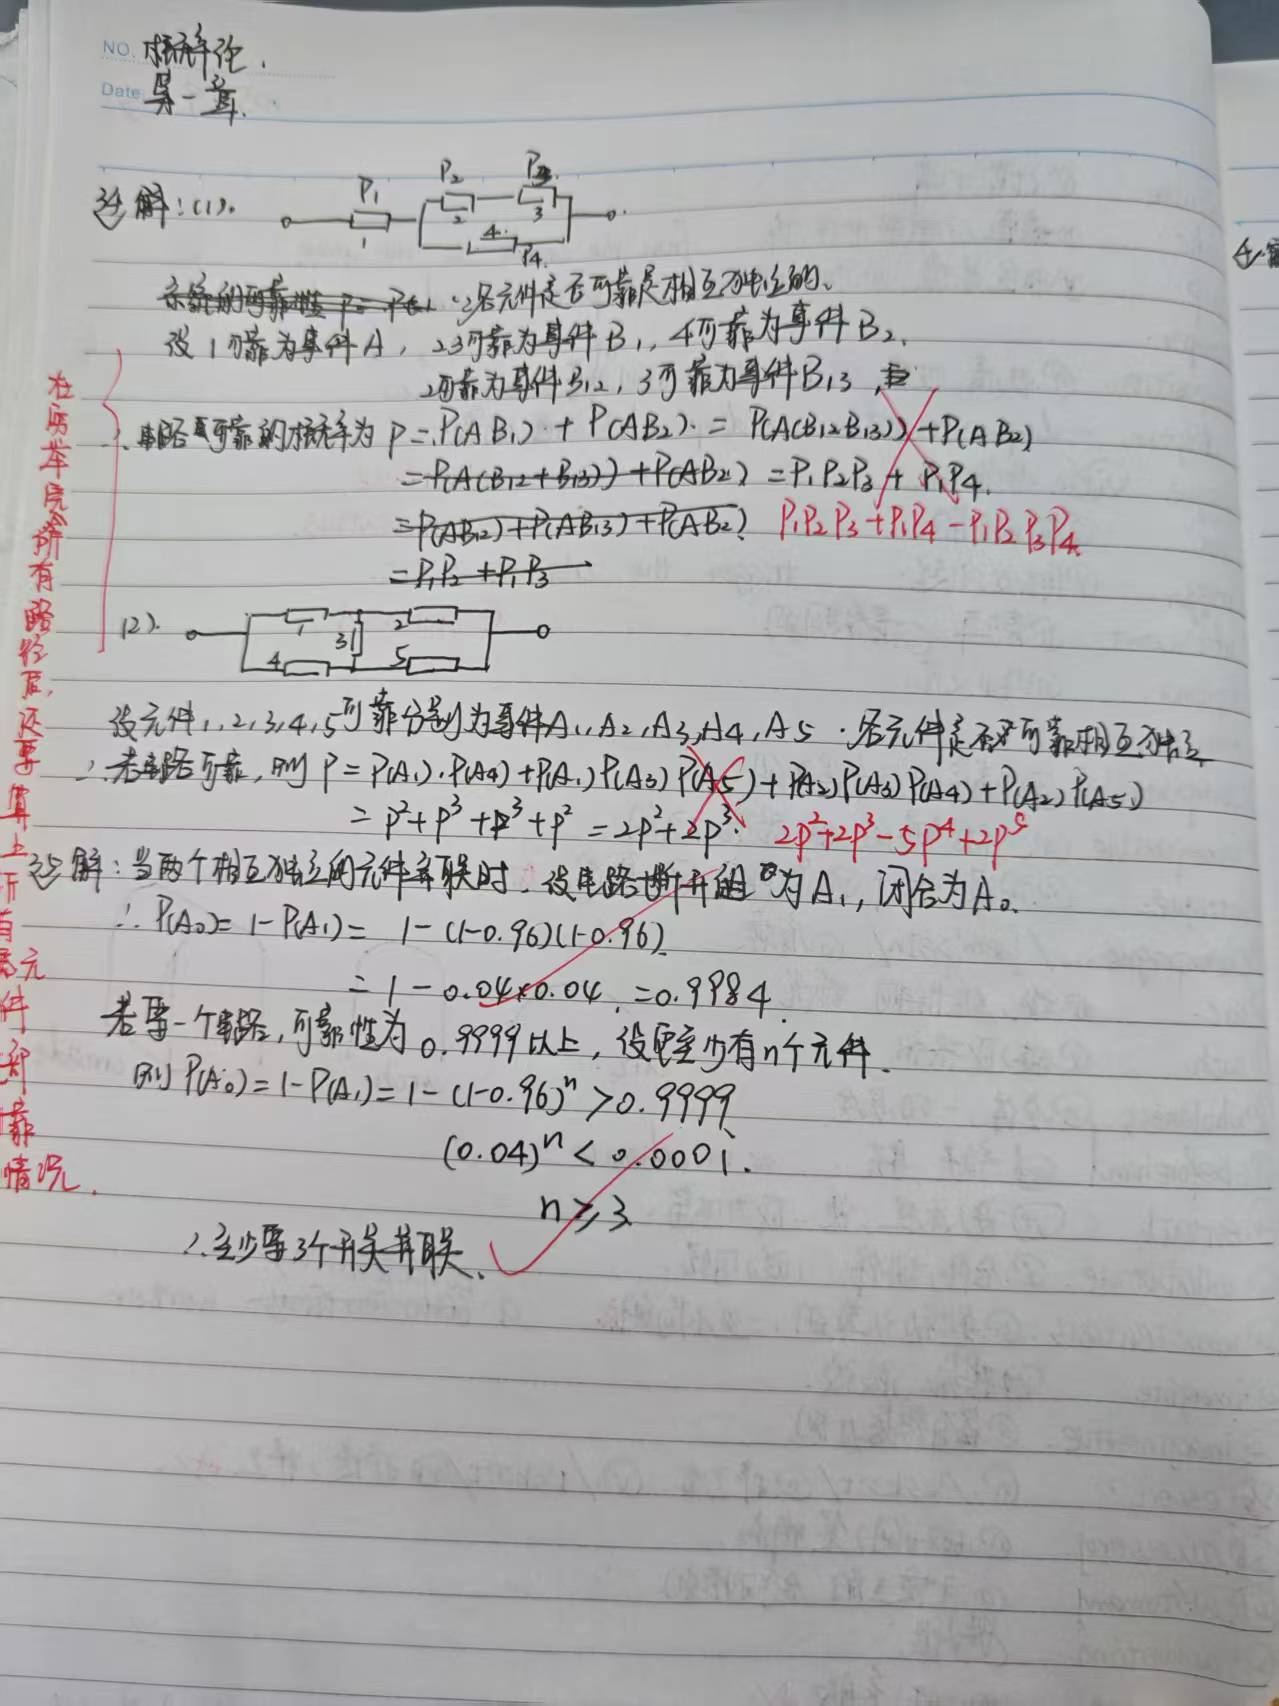 NO. 概率论.
Date 第一章.
34 解:(1).
P1 P2 P3
1 2 3
4 P4
系统的可靠性 P= P(A1 ∵各元件是否可靠是相互独立的.
设1可靠为事件A, 23可靠为事件B1, 4可靠为事件B2.
2可靠为事件B12, 3可靠为事件B13,
∴电路可靠的概率为 P=P(AB1)+P(AB2)=P(A(B12B13))+P(AB2)
=P(A(B12+B13))+P(AB2) =P1P2P3+P1P4.
=P(AB12)+P(AB13)+P(AB2) P1P2P3+P1P4-P1P2P3P4.
=P1P2+P1P3
(2).
1 2
3
4 5
设元件1,2,3,4,5可靠分别为事件A1,A2,A3,A4,A5.各元件是否可靠相互独立
∴若电路可靠,则 P=P(A1)·P(A4)+P(A1)P(A3)P(A5)+P(A2)P(A3)P(A4)+P(A2)P(A5)
=p²+p³+p³+p²=2p²+2p³. 2p²+2p³-5p⁴+2p⁵
35 解:当两个相互独立的元件并联时.设电路断开的为A1,闭合为A0.
∴P(A0)=1-P(A1)= 1-(1-0.96)(1-0.96)
=1-0.04×0.04.=0.9984.
若要一个电路,可靠性为0.9999以上,设至少有n个元件.
则P(A0)=1-P(A1)=1-(1-0.96)ⁿ>0.9999
(0.04)ⁿ<0.0001.
n≥3
∴至少要3个开关并联.
在列举完所有路径后,还要算上所有元件都靠情况.